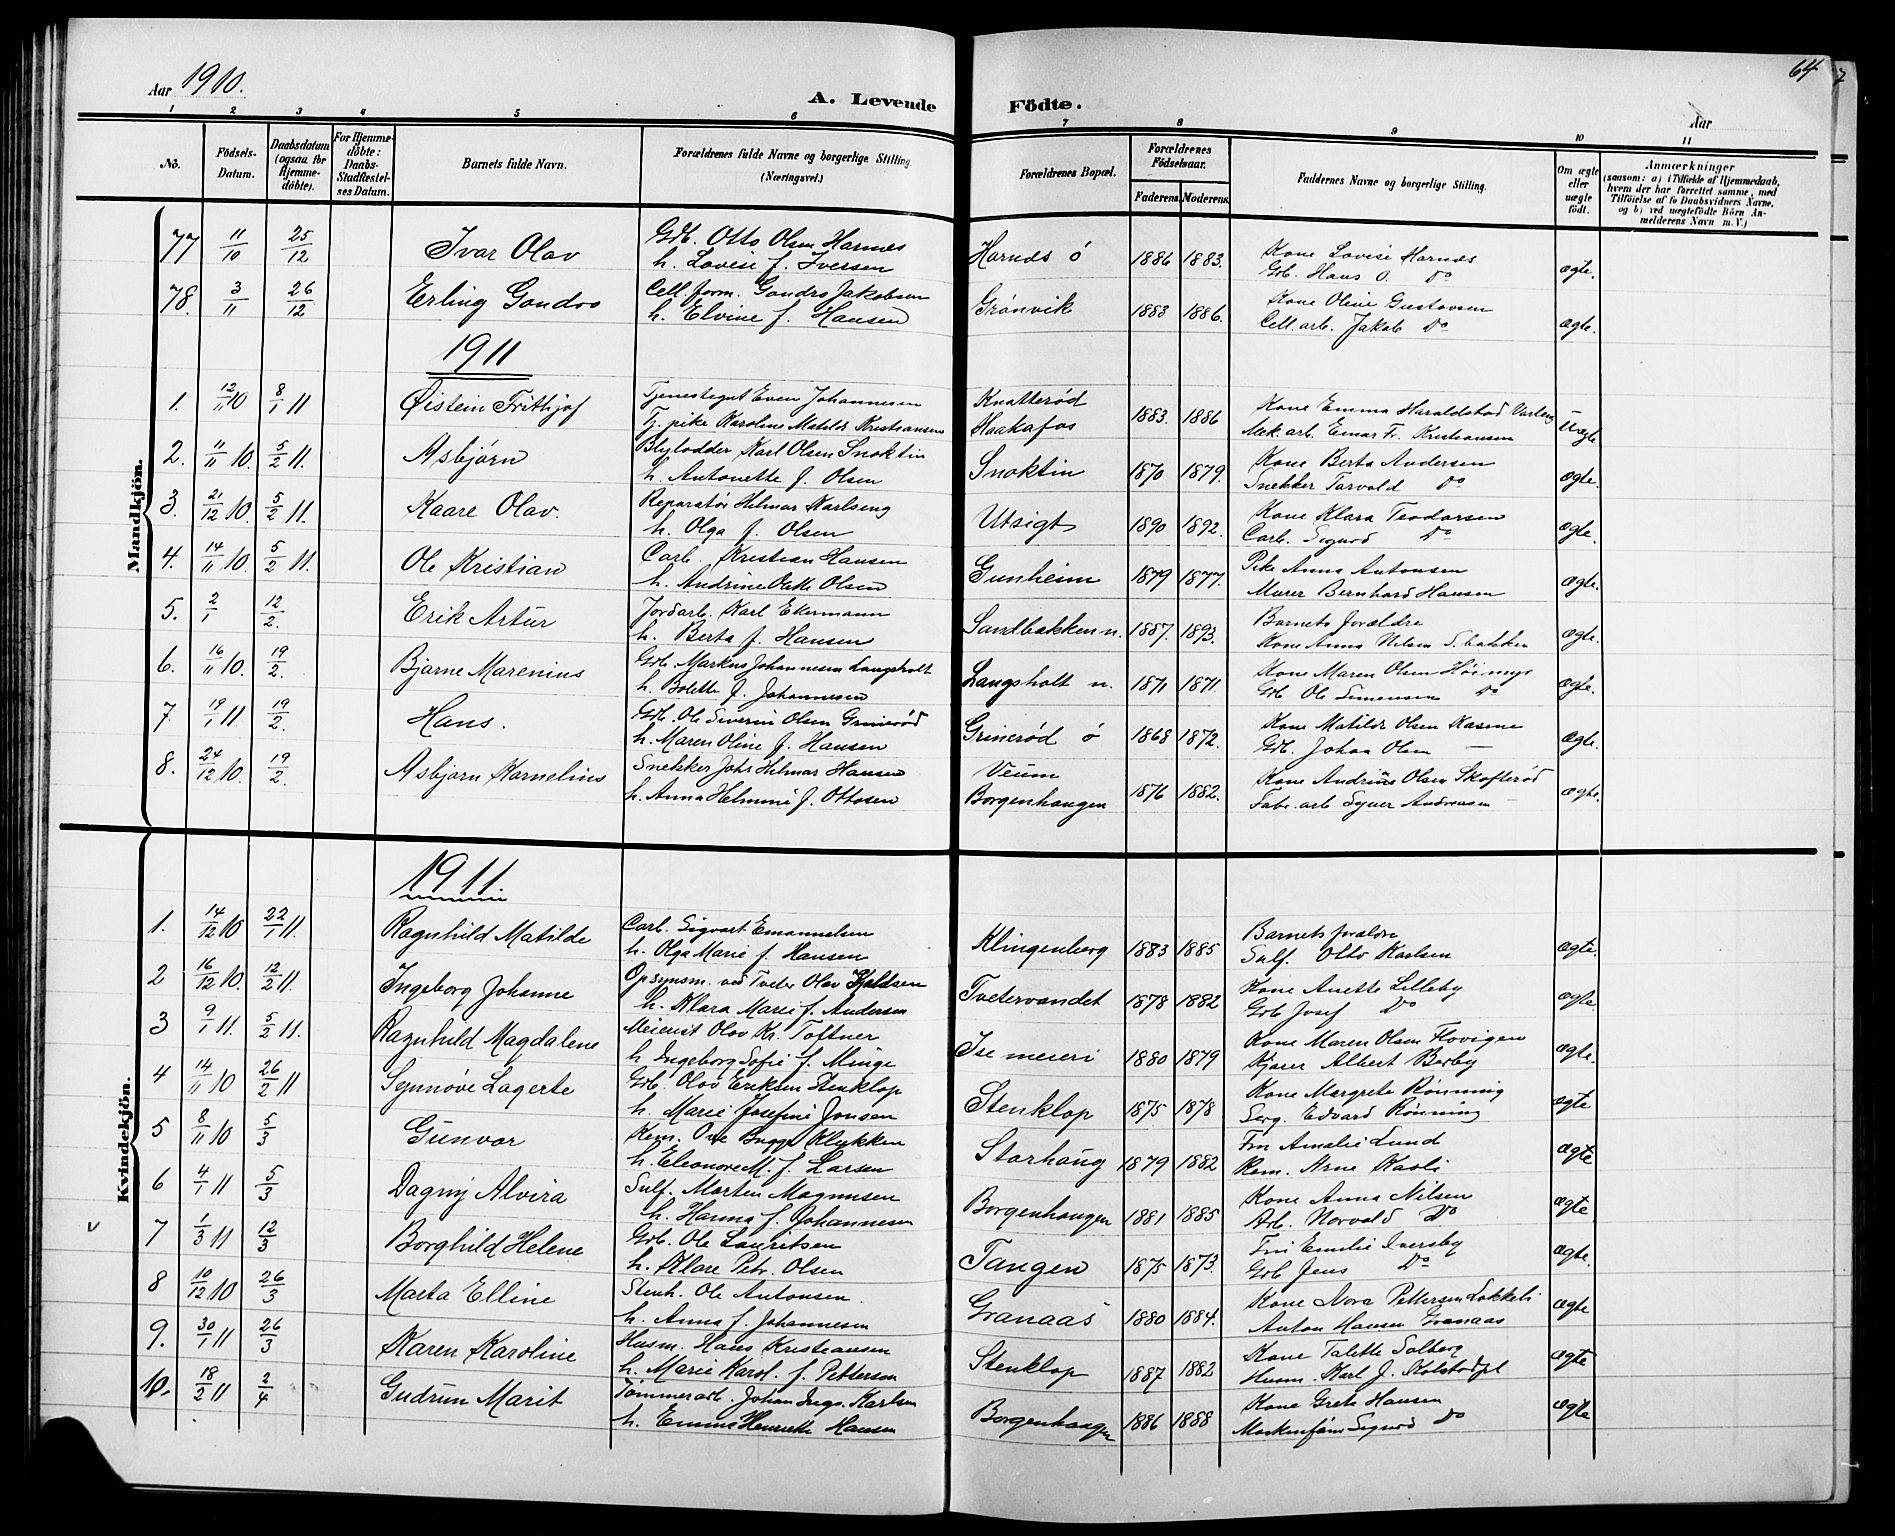 Aar 1910.
A. Levende Födte.
64
Aar
1 2 3 4 5 6 7 8 9 10 11
No.
Födsels-Datum.
Daabsdatum (ogsaa for Hjemme-döbte).
For Hjemme-döbte: Daabs-Stadfæstel-ses Datum.
Barnets fulde Navn.
Forældrenes fulde Navne og borgerlige Stilling. (Næringsvei.)
Forældrenes Bopæl.
Forældrenes Födselsaar.
Faderens. Moderens.
Faddernes Navne og borgerlige Stilling.
Om ægte eller uægte födt.
Anmærkninger
(saasom: a) i Tilfælde af Hjemmedaab, hvem der har forrettet samme, med Tilföielse af to Daabsvidners Navne, og b) ved uægtefödte Börn An-melderens Navn m. V.)
Mandkjön.
77 11/10 25/12 Ivar Olav Gdb. Otto Olsen Harnes Harnes ö 1886 1883. Kone Lovise Harnes ægte.
h. Lovise f. Iversen Gdb. Hans O. Do
78. 3/11 26/12 Erling Gondro Cell. form. Gondro Jakobsen Grönvik 1883 1886. Kone Oline Gustavsen ægte.
h. Elvine f. Hansen Cell. arb. Jakob Do
1911
1. 12/11 10 8/1 11 Øistein Frithjof Tjenestegut Even Johannesen Knatteröd 1883. 1886 Kone Emma Haraldstad uægte
Tj. pike Karoline Matilde Kristiansen Haakafos Mek. arb. Einar Fr. Kristiansen
2. 11/11 10. 5/2 11. Asbjörn Blylodder Karl Olsen Snoktin Snoktin 1870 1879. Kone Berta Andersen ægte.
h. Antonette f. Olsen Snekker Torvald Do
3. 21/12 10. 5/2 11. Kaare Olav. Reparatör Helmar Karlseng Utsigt 1890 1892. Kone Klara Teodorsen ægte.
h. Olga f. Olsen Carb. Sigurd Do
4. 14/11 10. 5/2 11. Ole Kristian Carb. Kristian Hansen Gunheim 1879 1877. Pike Anna Antonsen ægte.
h. Andrine Olsen Murer Bernhard Hansen
5. 2/1 12/2. Erik Artur Jordarb. Karl Ekermann Sandbakken n. 1887. 1893. Barnets forældre ægte.
h. Berta f. Hansen Kone Anna Nilsen S. bakken
6. 16/11 10. 19/2. Bjarne Marenius Gdb. Markus Johannesen Langsholt Langsholt n. 1871 1871. Kone Maren Olsen Höimyr ægte.
h. Bolette f. Johannesen Gdb Ole Simensen Do
7. 19/1 11. 19/2. Hans. Gdb. Ole Severin Olsen Grineröd Grineröd ö 1868 1872. Kone Matilde Olsen Kasene ægte.
h. Maren Oline f. Hansen Gdb. Johan Olsen —
8. 24/12 10. 19/2. Asbjørn Kornelius Snekker Johs Helmar Hansen Veum 1876 1882. Kone Andrine Olsen Skofteröd ægte.
h. Anna Helmine f. Ottosen Borgenhaugen Fabr. arb Syver Andreasen —
Kvindekjön.
1911.
1. 14/12 10 22/1 11. Ragnhild Matilde Carb. Sigvart Emanuelsen Klingenberg 1883 1885 Barnets forældre ægte.
h. Olga Marie f. Hansen Sulf. Otto Karlsen
2 16/12 10. 12/2 11. Ingeborg Johanne Opsynsm. ved Tveter Olav Kjeldsen Tvetervandet 1878 1882 Kone Anette Lilleby ægte
h. Klara Marie f. Andersen Gdb Josef Do
3 9/1 11. 5/2 11. Ragnhild Magdalene Meierist Olav Kr. Toftner Ise meieri 1880 1879 Kone Maren Olsen Flovigen ægte.
h Ingeborg Sofie f. Minge Kjører Albert Berby
4 14/11 10 26/2 11 Synnöve Lagerte Gdb. Olav Eriksen Stenklop Stenklop 1875 1878 Kone Margrete Rönning ægte
h. Marie Josefine Jonsen Serg. Edvard Rönning
5 8/11 10 5/3 Gunvor Kem. Ove Bugge Klykken Storhaug 1879 1882 Fru Amalie Lund ægte
h. Eleonore M. f. Larsen Kem. Arne Kaoli
6 4/1 11 5/3 Dagny Alvira Sulf. Morten Magnusen Borgenhaugen 1881 1885 Kone Anna Nilsen ægte
h. Hanna f. Johannesen Arb. Norvald Do
v 7 1/3 11 12/3 Borghild Helene Gdb. Ole Lauritsen Tangen 1875 1873. Fru Emilie Iversby ægte.
h. Klare Petr. Olsen Gdb Jens Do
8 10/12 10 26/3 Marta Elline Stenh. Ole Antonsen. Granaas 1880 1884. Kone Nora Pettersen Lökkeli ægte
h. Anna f. Johannesen Anton Hansen Granaas
9. 30/1 11 26/3 Karen Karoline Husm. Hans Kristiansen Stenklop 1887 1882 Kone Talette Solberg ægte
h. Marie Karol. f. Pettersen Husm. Karl J. Kolstadpl
10. 18/2 11 2/4 Gudrun Marit Tömmerarb. Johan Ingv. Karlsen Borgenhaugen 1886 1888 Kone Grete Hansen ægte
h. Emma Henriette Hansen Maskinförer Sigurd Do